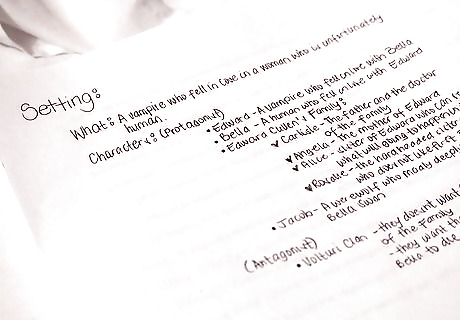 Setting:
What: A vampire who fell in love in a woman who is unfortunately
human.
Characters: (Protagonist)
• Edward - A vampire who fell on love with Bella
• Bella - A human who fell on love with Edward
• Edward Cullen's Family:
♥ Carlisle - The father and the doctor
of the family
♥ Angela - The mother of Edward
♥ Alice - sister of Edward who can
what will going to happen in
♥ Rosalie - the hardheaded sister
who doesnot like first
• Jacob - A werewolf who madly deeply
Bella Swan
(Antagonist)
• Volturi Clan - they doesn't want
of the Family
- they want th
Bella to die